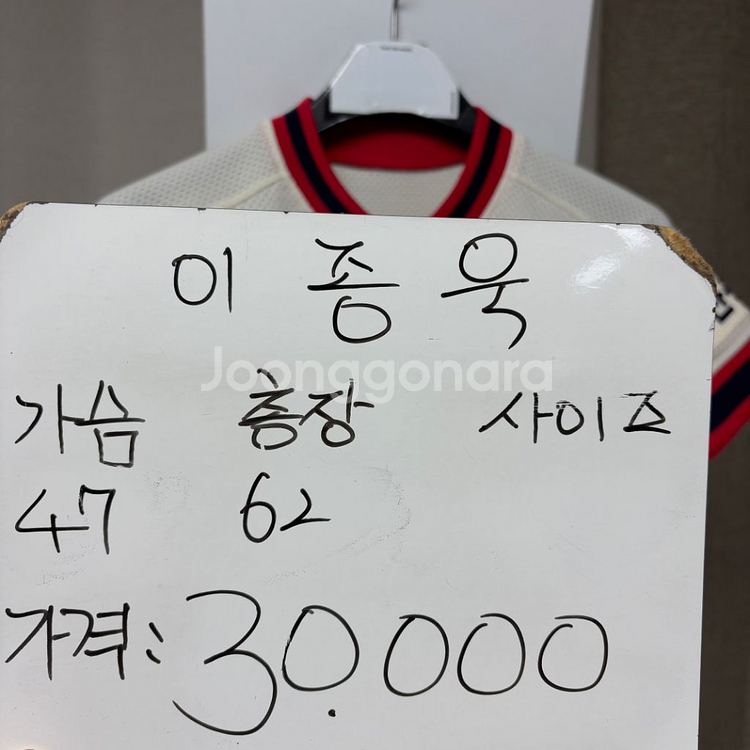 이 종 욱
Joonggonara
가슴 총장 사이즈
47 62
가격: 30.000